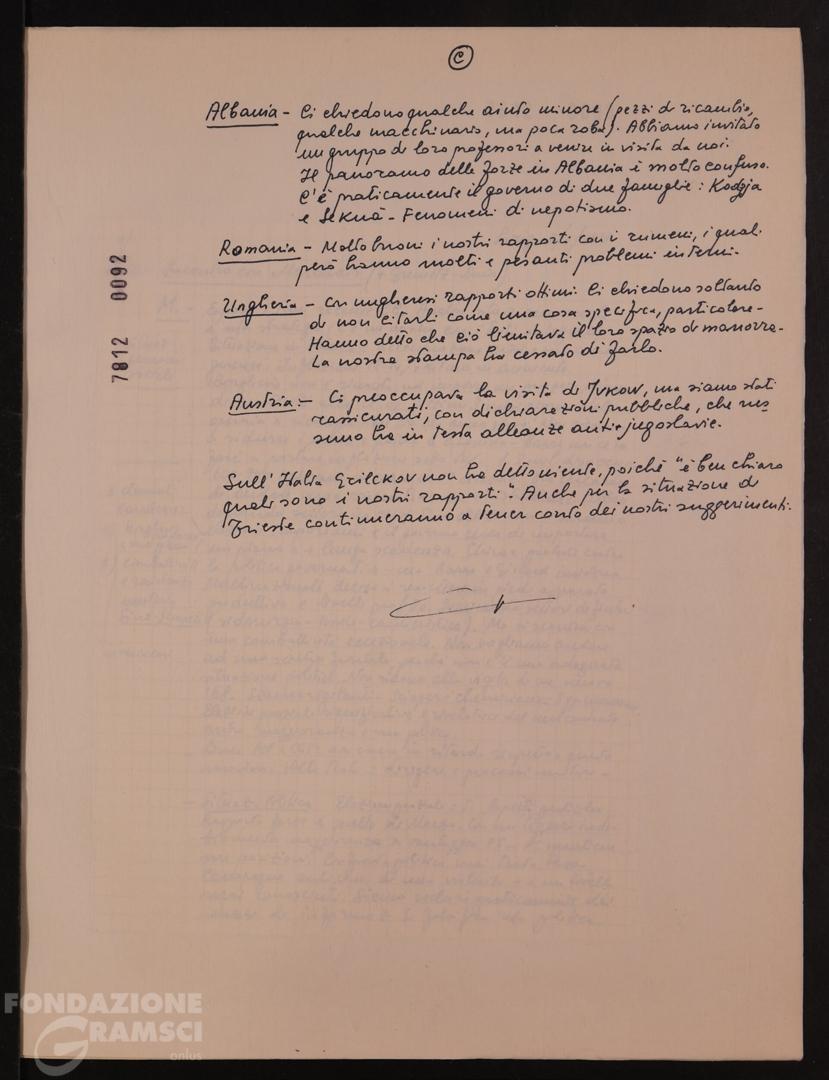 C
Albania - Ci chiedono qualche aiuto minore (pezzi di ricambio,
qualche macchinario, ma poca roba). Abbiamo invitato
un gruppo di loro professori a venire in visita da noi.
Il panorama delle forze in Albania è molto confuso.
C'è praticamente il governo di due famiglie: Kodgja
e Sekuà - Fenomeni di nepotismo.
Romania - Molto buoni i nostri rapporti con i rumeni, i quali
però hanno molti e pesanti problemi interni.
Ungheria - Con ungheresi rapporti ottimi. Ci chiedono soltanto
di non citarli come una cosa specifica, particolare -
Hanno detto che ciò limitava il loro spazio di manovra -
La nostra stampa ha cessato di farlo.
Austria - Ci preoccupava la visita di Jvkov, ma siamo stati
rassicurati, con dichiarazioni pubbliche, che nes
suno ha in testa alleanze anti-jugoslavie.
Sull'Italia Grlickov non ha detto niente, poiché "è ben chiaro
quali sono i nostri rapporti". Anche per la situazione di
Trieste continueranno a tener conto dei nostri suggerimenti.
7812 0092
FONDAZIONE
GRAMSCI
onlus